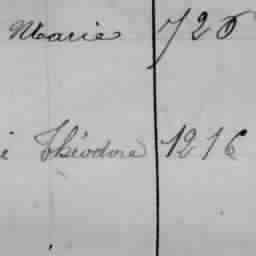 Marie 726
Théodore 1216